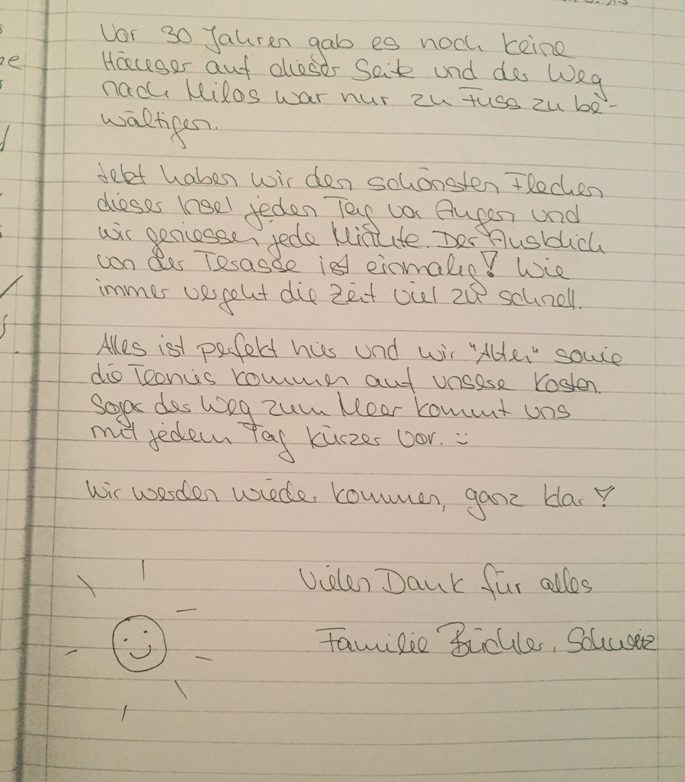 Vor 30 Jahren gab es noch keine
Häuser auf dieser Seite und der Weg
nach Milos war nur zu Fuss zu be-
wältigen.
Jetzt haben wir den schönsten Flecken
dieser Insel jeden Tag vor Augen und
wir geniessen jede Minute. Der Ausblick
von der Terasse ist einmalig! Wie
immer vergeht die Zeit viel zu schnell.
Alles ist perfekt hier und wir "Alten" sowie
die Teenies kommen auf unsere Kosten.
Sogar der Weg zum Meer kommt uns
mit jedem Tag kürzer vor. :-)
Wir werden wieder kommen, ganz klar!
Vielen Dank für alles
Familie Büchler, Schweiz